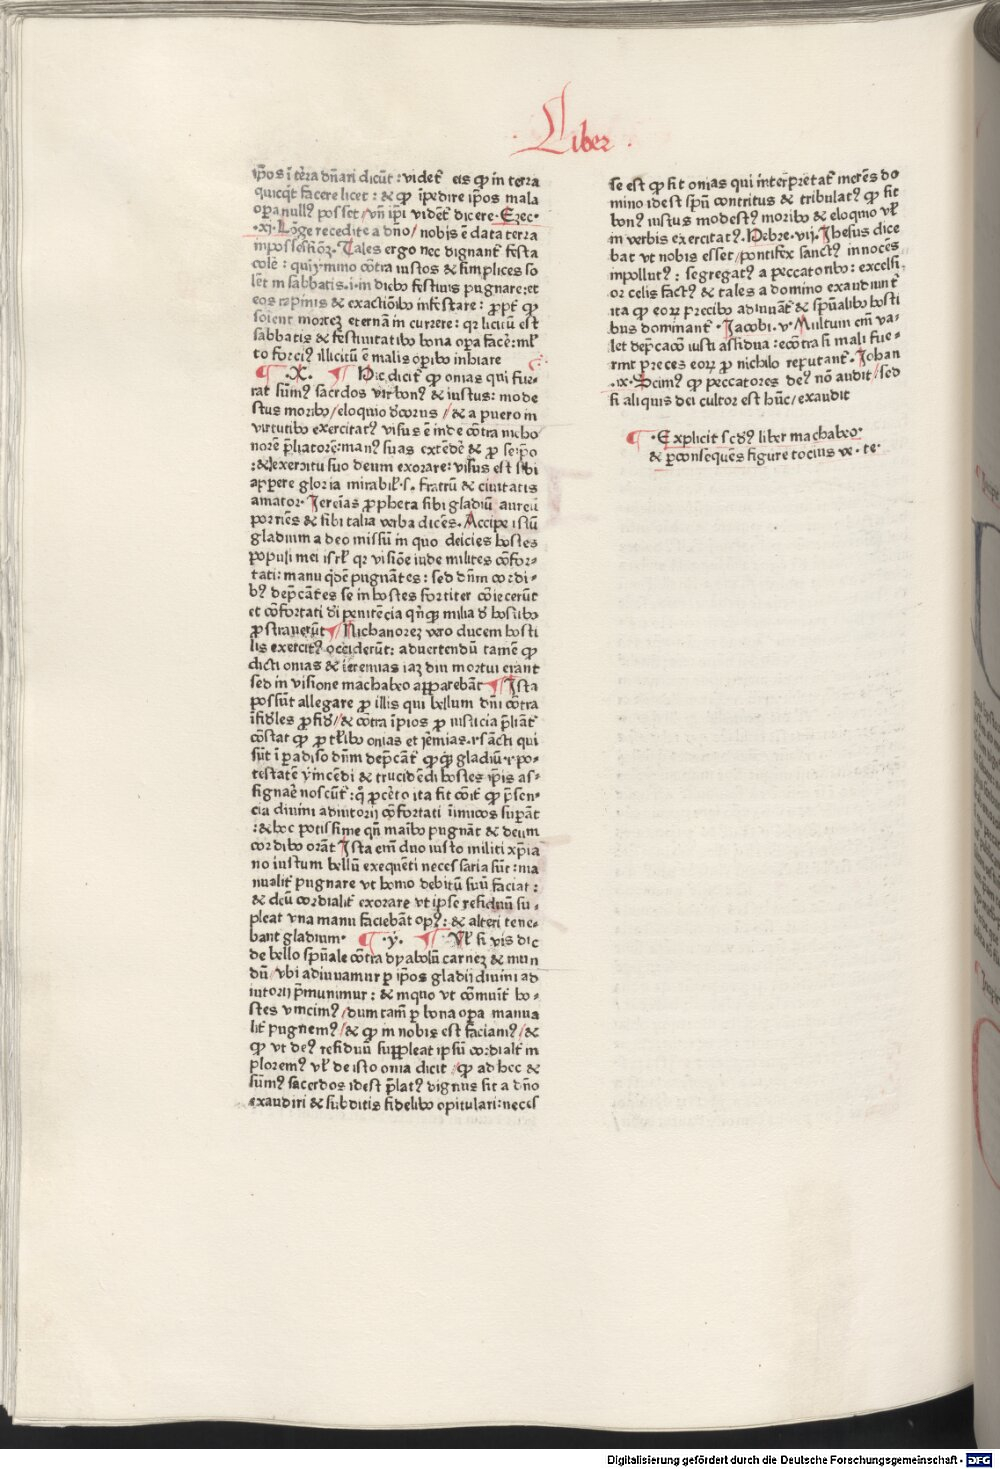 Liber
ip̄os ī tẽra dñari dicūt : videt᷑ eis ꝙ in terra
quicq̄t facere licet : & ꝙ īpedire ip̄os mala
oꝑa nullꝰ posset / vñ ip̄i videt᷑ dicere · Ezec·
·xj· Lōge recedite a dño / nobis ē data terra
in possessiōꝫ · Tales ergo nec dignant᷑ festa
colē : quīymino cōtra iustos & simplices so
lēt in sabbatis ·i· in diebo festiuis pugnare : et
eos rapinis & exactiōibo infestare : ꝓpt̄ ꝙ
solent morteꝫ eternā in currere : qꝛ licitū est
sabbatis & festiuitatibo bona oꝑa facē : ml̄
to forciꝰ illicitū ē malis oꝑibo inhiare
·X· Hic dicit᷑ ꝙ onias qui fue-
rat sūmꝰ sacrdos vir bonꝰ & iustus : mode
stus moribo / eloquio dcorus // & a puero in
virtutibo exercitatꝰ visus ē inde cōtra nicho
norē p̄liatorē : manꝰ suas extēdē & ꝓ se ip̄o
: & exercitu suo deum exorare : visus est sibi
apꝑere gloria mirabil᷑ ·s· fratrū & ciuitatis
amator · Jereias ꝓpheta sibi gladiū aureū
porriēs & sibi talia verba dicēs · Accipe istū
gladium a deo missū in quo deicies hostes
populi mei isrl̄ qꝛ visiōe iude milites cōfor-
tati : manu q̄dē pugnātes : sed dñm cordi-
bꝰ dep̄cātes se in hostes fortiter cōiecerūt
et cōfortati dī penitēcia qn̄qꝫ milia d̄ hostibo
ꝓstrauerūt Nichanoreꝫ vero ducem hosti
lis exercitꝰ occiderūt : aduertendū tamē ꝙ
dicti onias & ieremias iaꝫ diu mortui erant
sed in visione machabeo apparebāt Ista
possūt allegare ꝓ illis qui bellum dñi cōtra
īfidēles ꝓ fid̄ // & cōtra īpios ꝓ iusticia p̄liāt᷑
cōstat ꝙ ꝓ tl̄ibo onias et jēmias ·⁊ sācti qui
sūt ī ꝑadiso dñm dep̄cāt᷑ ꝙqꝫ gladiū ·⁊ po-
testatē ymcēdi & trucidēdi hostes ip̄is as-
signaē noscūt᷑ : q̄ ꝓcēto ita fit cōit᷑ ꝙ p̄sen-
cia diuini adiutorij cōfortati īimicos suꝑāt
: & hoc potissime qñ maībo pugnāt & deum
cordibo orāt Ista em̄ duo iusto militi xp̄ia
no iustum bellū exequēti necessaria sūt : ma
nualit᷑ pugnare vt homo debitū suū faciat :
& deū cordialit᷑ exorare vt ipse residuū su-
pleat vna manu faciebāt opꝰ : & alteri tene-
bant gladium · ·y· Vl̄ si vis dic
de bello sp̄uale cōtra dyabolū carneꝫ & mun
dū / vbi adiuuamur ꝑ ip̄os gladij diuini ad
iutorij p̄munimur : & in quo vt cōmuīt᷑ ho-
stes vincimꝰ / dum tam̄ ꝑ bona oꝑa manua
lit᷑ pugnemꝰ / & ꝙ in nobis est faciamꝰ / &
ꝙ vt deꝰ residuū suppleat ipsū cordialt᷑ in
ploremꝰ vl̄ de isto onia dicit / ꝙ ad hec &
sūmꝰ sacerdos idest p̄latꝰ dignus sit a dño
exaudiri & subditis fidelibo opitulari : neces
se est ꝙ sit onias qui interp̄retat᷑ merēs do
mino idest sp̄u contritus & tribulatꝰ ꝙ sit
bonꝰ iustus modestꝰ moribo & eloquio vl̄
in verbis exercitatꝰ · Hebre · vij · Ihesus dice
bat vt nobis esset / pontifex sanctꝰ innocēs
inpollutꝰ : segregatꝰ a peccatoribo : excelsi
or celis factꝰ & tales a domino exaudiunt᷑
ita ꝙ eoꝝ p̄recibo adiuuāt᷑ & sp̄ualibo hosti
bus dominant᷑ · Jacobi · v · Multum em̄ va-
let dep̄cacō iusti assidua : ecōtra si mali fue-
rint preces eoꝝ ꝓ nichilo reputant᷑ · Johan
·ix· Scimꝰ ꝙ peccatores deꝰ nō audit / sed
si aliquis dei cultor est hūc / exaudit
· Explicit scd̄ꝰ liber machabeo·
& ꝑ consequēs figure tocius ve · te ·
Digitalisierung gefördert durch die Deutsche Forschungsgemeinschaft - DFG